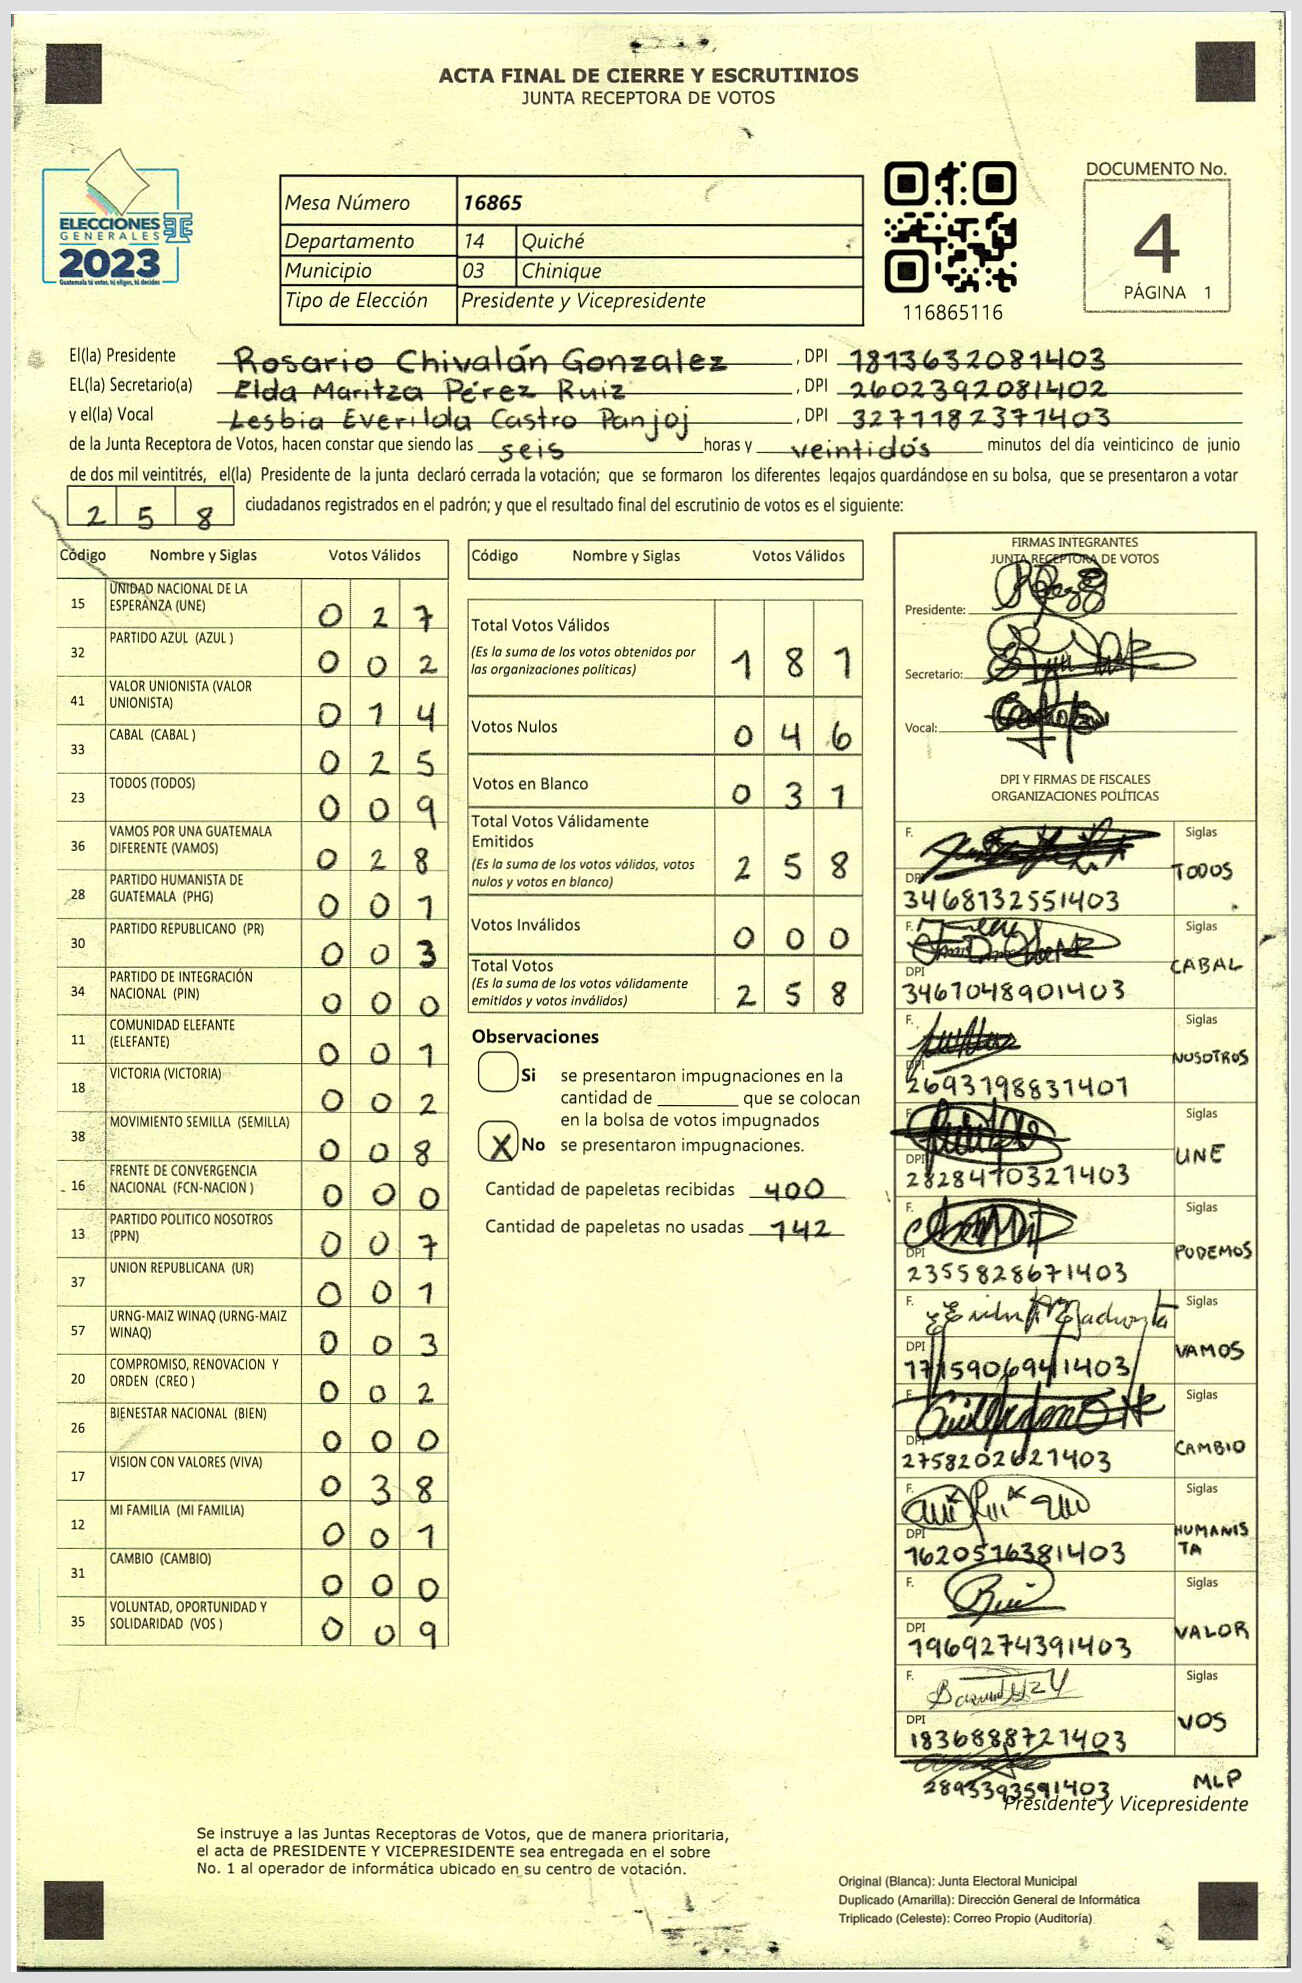 ACTA FINAL DE CIERRE Y ESCRUTINIOS
JUNTA RECEPTORA DE VOTOS
ELECCIONES
GENERALES
2023
Guatemala tú votas, tú eliges, tú decides
Mesa Número 16865
Departamento 14 Quiché
Municipio 03 Chinique
Tipo de Elección Presidente y Vicepresidente
116865116
DOCUMENTO No.
4
PÁGINA 1
El(la) Presidente Rosario Chivalán Gonzalez, DPI 1813632081403
EL(la) Secretario(a) Elda Maritza Pérez Ruiz, DPI 2602392081402
y el(la) Vocal Lesbia Everilda Castro Panjoj, DPI 3271182371403
de la Junta Receptora de Votos, hacen constar que siendo las seis horas y veintidós minutos del día veinticinco de junio
de dos mil veintitrés, el(la) Presidente de la junta declaró cerrada la votación; que se formaron los diferentes legajos guardándose en su bolsa, que se presentaron a votar
2 5 8 ciudadanos registrados en el padrón; y que el resultado final del escrutinio de votos es el siguiente:
Código Nombre y Siglas Votos Válidos
15 UNIDAD NACIONAL DE LA ESPERANZA (UNE) 0 2 7
32 PARTIDO AZUL (AZUL ) 0 0 2
41 VALOR UNIONISTA (VALOR UNIONISTA) 0 1 4
33 CABAL (CABAL ) 0 2 5
23 TODOS (TODOS) 0 0 9
36 VAMOS POR UNA GUATEMALA DIFERENTE (VAMOS) 0 2 8
28 PARTIDO HUMANISTA DE GUATEMALA (PHG) 0 0 1
30 PARTIDO REPUBLICANO (PR) 0 0 3
34 PARTIDO DE INTEGRACIÓN NACIONAL (PIN) 0 0 0
11 COMUNIDAD ELEFANTE (ELEFANTE) 0 0 1
18 VICTORIA (VICTORIA) 0 0 2
38 MOVIMIENTO SEMILLA (SEMILLA) 0 0 8
16 FRENTE DE CONVERGENCIA NACIONAL (FCN-NACION ) 0 0 0
13 PARTIDO POLITICO NOSOTROS (PPN) 0 0 7
37 UNION REPUBLICANA (UR) 0 0 1
57 URNG-MAIZ WINAQ (URNG-MAIZ WINAQ) 0 0 3
20 COMPROMISO, RENOVACION Y ORDEN (CREO ) 0 0 2
26 BIENESTAR NACIONAL (BIEN) 0 0 0
17 VISION CON VALORES (VIVA) 0 3 8
12 MI FAMILIA (MI FAMILIA) 0 0 1
31 CAMBIO (CAMBIO) 0 0 0
35 VOLUNTAD, OPORTUNIDAD Y SOLIDARIDAD (VOS ) 0 0 9
Código Nombre y Siglas Votos Válidos
Total Votos Válidos
(Es la suma de los votos obtenidos por
las organizaciones políticas) 1 8 1
Votos Nulos 0 4 6
Votos en Blanco 0 3 1
Total Votos Válidamente
Emitidos
(Es la suma de los votos válidos, votos
nulos y votos en blanco) 2 5 8
Votos Inválidos 0 0 0
Total Votos
(Es la suma de los votos válidamente
emitidos y votos inválidos) 2 5 8
Observaciones
Si se presentaron impugnaciones en la
cantidad de ________ que se colocan
en la bolsa de votos impugnados
X No se presentaron impugnaciones.
Cantidad de papeletas recibidas 400
Cantidad de papeletas no usadas 142
FIRMAS INTEGRANTES
JUNTA RECEPTORA DE VOTOS
Presidente:
Secretario:
Vocal:
DPI Y FIRMAS DE FISCALES
ORGANIZACIONES POLÍTICAS
F. Siglas
TODOS
DPI
3468132551403
F. Siglas
CABAL
DPI
3467048901403
F. Siglas
NOSOTROS
DPI
2693198831401
F. Siglas
UNE
DPI
2828470321403
F. Siglas
PODEMOS
DPI
2355828671403
F. Siglas
VAMOS
DPI
1715906941403
F. Siglas
CAMBIO
DPI
2758202621403
F. Siglas
HUMANIS
TA
DPI
1620516381403
F. Siglas
VALOR
DPI
1969274391403
F. Siglas
VOS
DPI
1836888721403
MLP
2893393591403
Presidente y Vicepresidente
Se instruye a las Juntas Receptoras de Votos, que de manera prioritaria,
el acta de PRESIDENTE Y VICEPRESIDENTE sea entregada en el sobre
No. 1 al operador de informática ubicado en su centro de votación.
Original (Blanca): Junta Electoral Municipal
Duplicado (Amarilla): Dirección General de Informática
Triplicado (Celeste): Correo Propio (Auditoría)